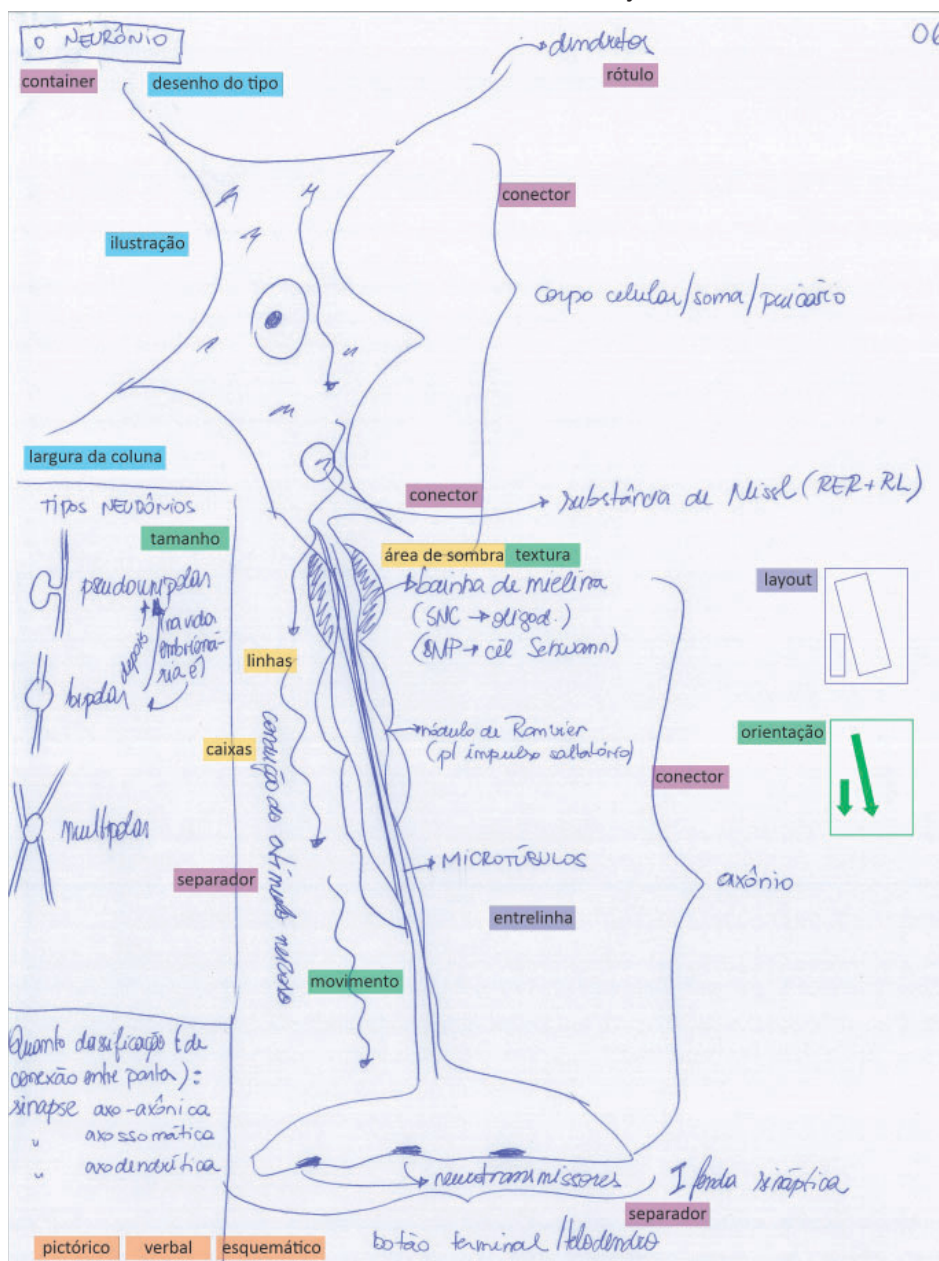 O NEURÔNIO
06
dendritos
container
desenho do tipo
rótulo
conector
ilustração
corpo celular/soma/pericário
largura da coluna
conector
substância de Nissl (RER+RL)
TIPOS NEURÔNIOS
tamanho
pseudounipolar
(na vida
embrioná-
ria é)
depois
bipolar
multipolar
área de sombra
textura
bainha de mielina
(SNC → oligod.)
(SNP → cél Schwann)
layout
linhas
caixas
condução do estímulo nervoso
nódulo de Ranvier
(p/ impulso saltatório)
orientação
conector
separador
MICROTÚBULOS
axônio
entrelinha
movimento
Quanto classificação (de
conexão entre partes):
sinapse axo-axônica
" axossomática
" axodendrítica
neurotransmissores
fenda sináptica
separador
botão terminal /telodendro
pictórico
verbal
esquemático